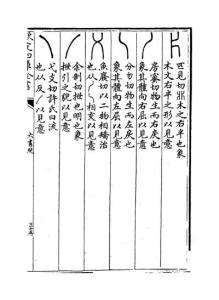 匹見切判木之右半也象
木文右半之形以見意
房密切物生而右戾也
象其體向右屈以見意
分勿切物生而左戾也
象其體向左屈以見意
魚廢切以二物相矯治
也从丿乀相交以見意
余制切抴也明也象
抴引之貌以見意
弋支切許氏曰流
也从反以見意
欽定四庫全書
六書統